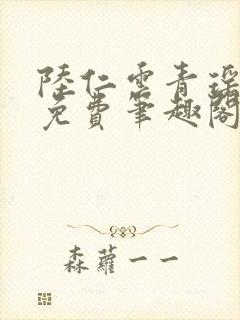 陸仁雲青瑤
免費筆趣閣
森蘿一一